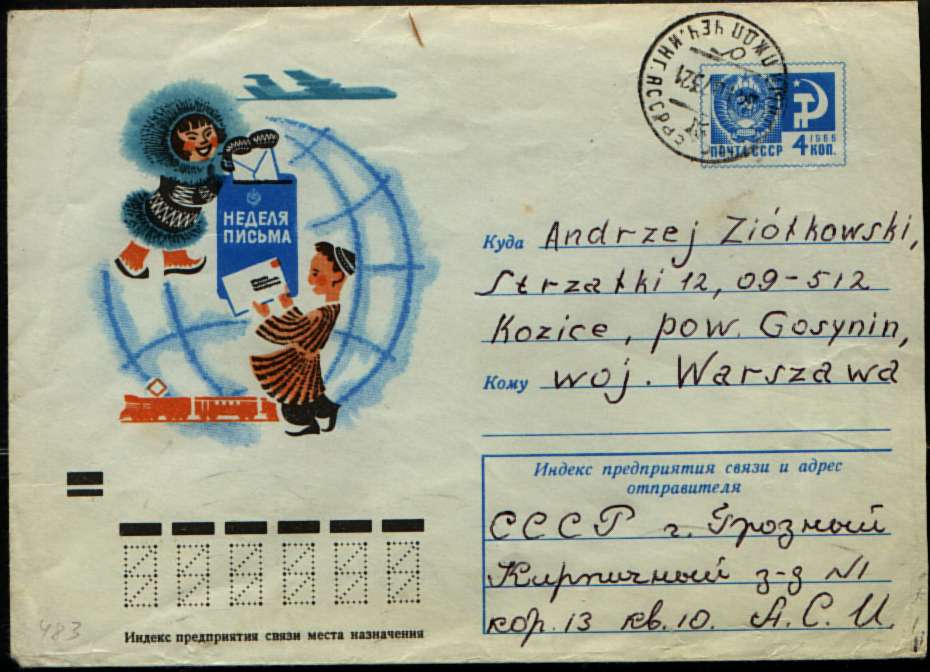 НЕДЕЛЯ
ПИСЬМА
ПОЧТА СССР
1966
4 КОП.
Куда Andrzej Ziółkowski,
Strzałki 12, 09-512
Kozice, pow. Gosynin,
Кому woj. Warszawa
Индекс предприятия связи и адрес
отправителя
СССР г. Грозный
Кирпичный з-д №1
кор. 13 кв. 10. А. С. И.
Индекс предприятия связи места назначения
483